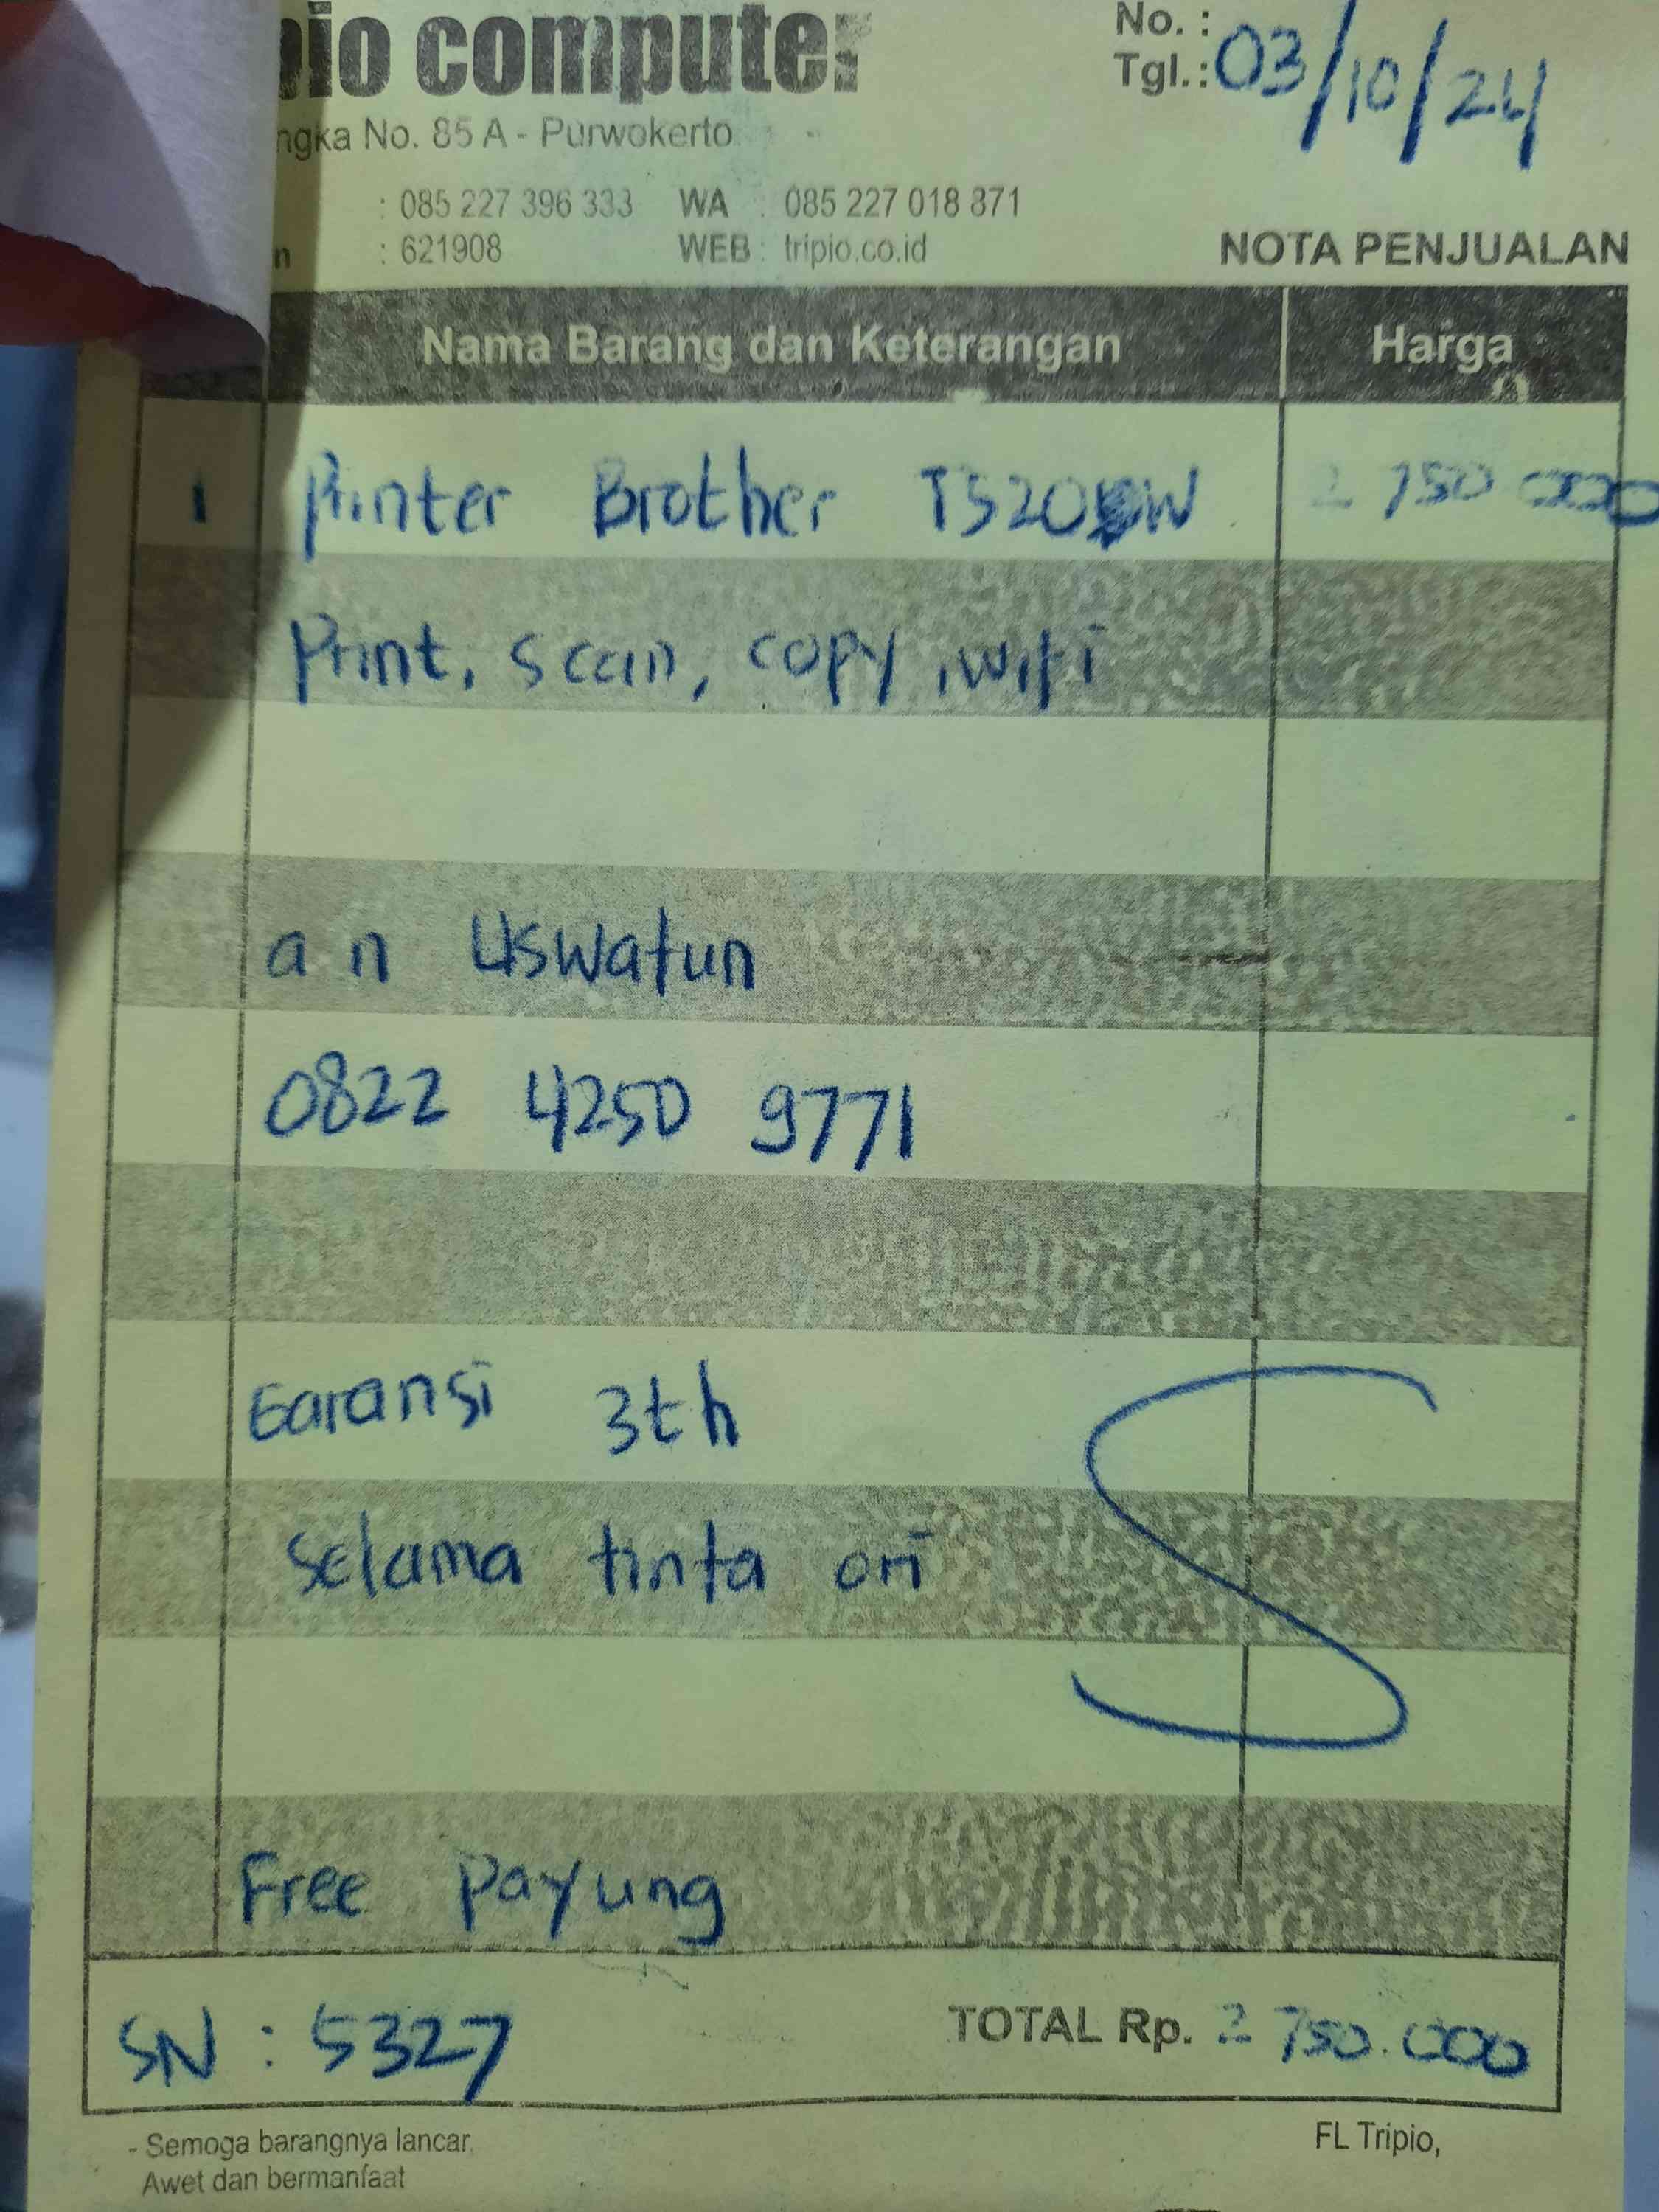 pio computer
No. :
Tgl.: 03/10/24
ngka No. 85 A - Purwokerto
: 085 227 396 333 WA : 085 227 018 871
n : 621908 WEB : tripio.co.id
NOTA PENJUALAN
Nama Barang dan Keterangan Harga
1 Printer Brother T520W 2 750 000
Print, scan, copy, wifi
an Uswatun
0822 4250 9771
Garansi 3th
selama tinta ori
Free Payung
SN : 5327 TOTAL Rp. 2 750.000
- Semoga barangnya lancar, FL Tripio,
Awet dan bermanfaat